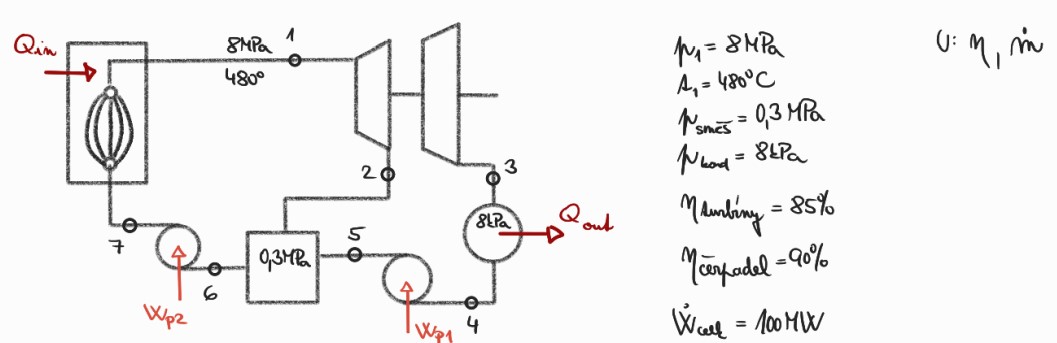 Qin
8MPa
480°
1
2
3
8kPa
Qout
7
0,3MPa
5
6
4
Wp2
Wp1
p1 = 8MPa
t1 = 480°C
psměš = 0,3 MPa
pkond = 8kPa
ηturbíny = 85%
ηčerpadel = 90%
Ẇcelk = 100MW
U: η, ṁ